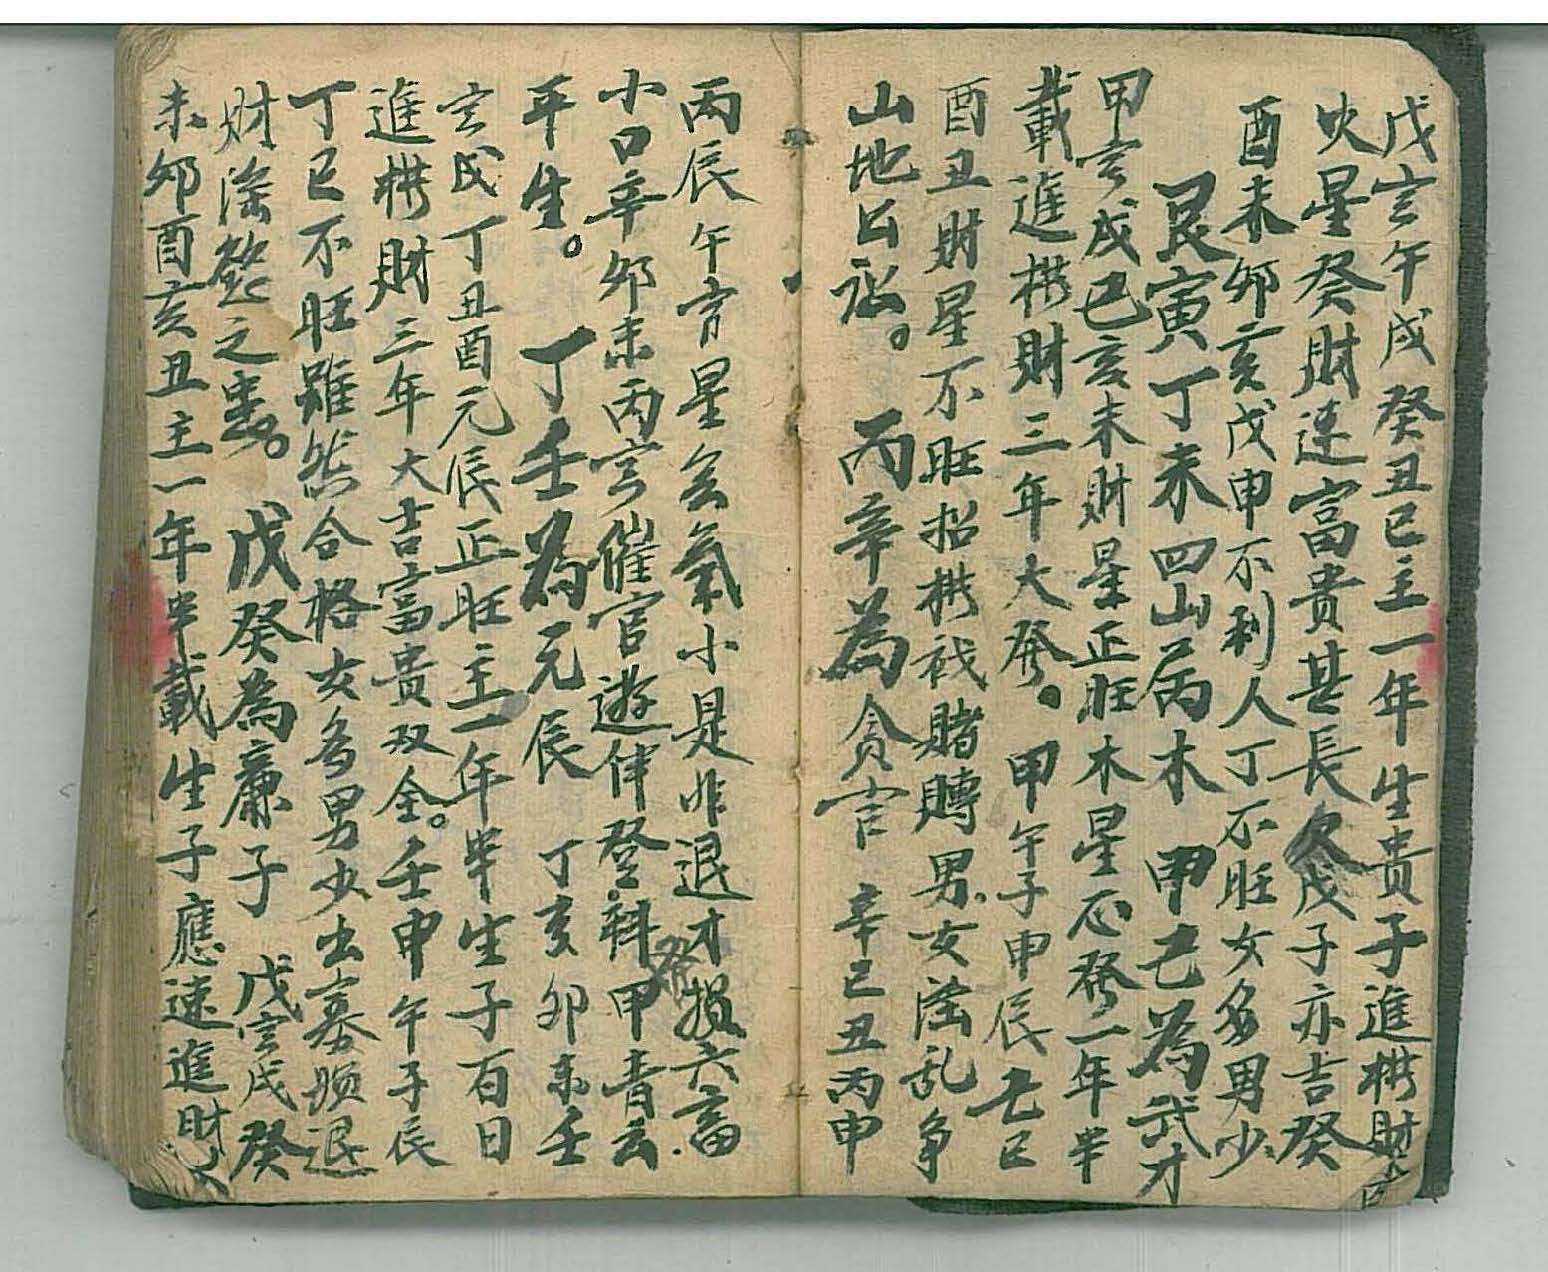 戊亥午戌癸丑巳主一年生貴子進横財
火星癸財逢富貴甚長久戊子亦吉癸
酉未卯亥戊申不利人丁不旺女多男少
艮寅丁未四山屬木 甲己為武才
甲亥戌己亥未財星正旺木星應發一年半
載進横財三年大發。甲午子申辰己巳
酉丑財星不旺招横賊賭賻男女淫乱争
山地公訟。 丙辛為貪 辛巳丑丙申
丙辰午 星 氣小是非退才損六畜
小口辛卯未丙 催官遊伴登科發甲音云
平生。 丁壬為元辰 丁亥卯未壬
亥戌丁丑酉元辰正旺主一年半生子百日
進横財三年大吉富貴双全。壬申午子辰
丁巳不旺雖然合格女多男少出寡婦退
財淫慾之患。 戊癸為廉子 戊 戌癸
未卯酉亥丑主一年半載生子應速進財